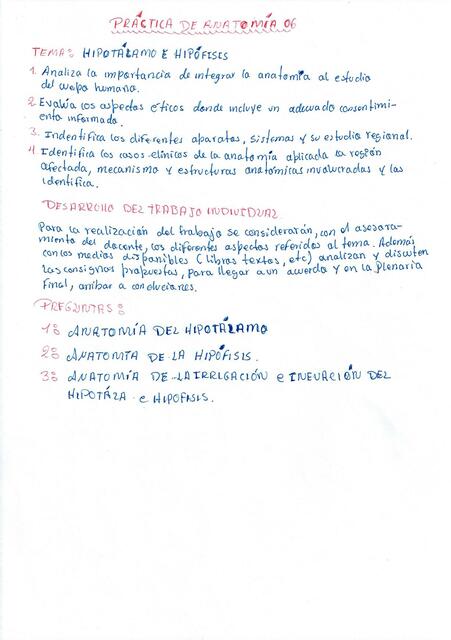 PRÁCTICA DE ANATOMÍA 06
TEMA: HIPOTÁLAMO E HIPÓFISIS
1. Analiza la importancia de integrar la anatomía al estudio
del cuerpo humano.
2. Evalúa los aspectos éticos donde incluye un adecuado consentimi-
ento informado.
3. Indentifica los diferentes aparatos, sistemas y su estudio regional.
4. Identifica los casos clínicos de la anatomía aplicada la región
afectada, mecanismo y estructuras anatómicas involucradas y las
identifica.
DESARROLLO DEL TRABAJO INDIVIDUAL
Para la realización del trabajo se considerarán, con el asesora-
miento del docente, los diferentes aspectos referidos al tema. Además
con los medios disponibles (libros textos, etc) analizan y discuten
las consignas propuestas, para llegar a un acuerdo y en la Plenaria
Final, arribar a conclusiones.
PREGUNTAS:
1: ANATOMÍA DEL HIPOTÁLAMO
2: ANATOMÍA DE LA HIPÓFISIS.
3: ANATOMÍA DE LA IRRIGACIÓN e INEVACIÓN DEL
HIPOTÁZA e HIPOFISIS.